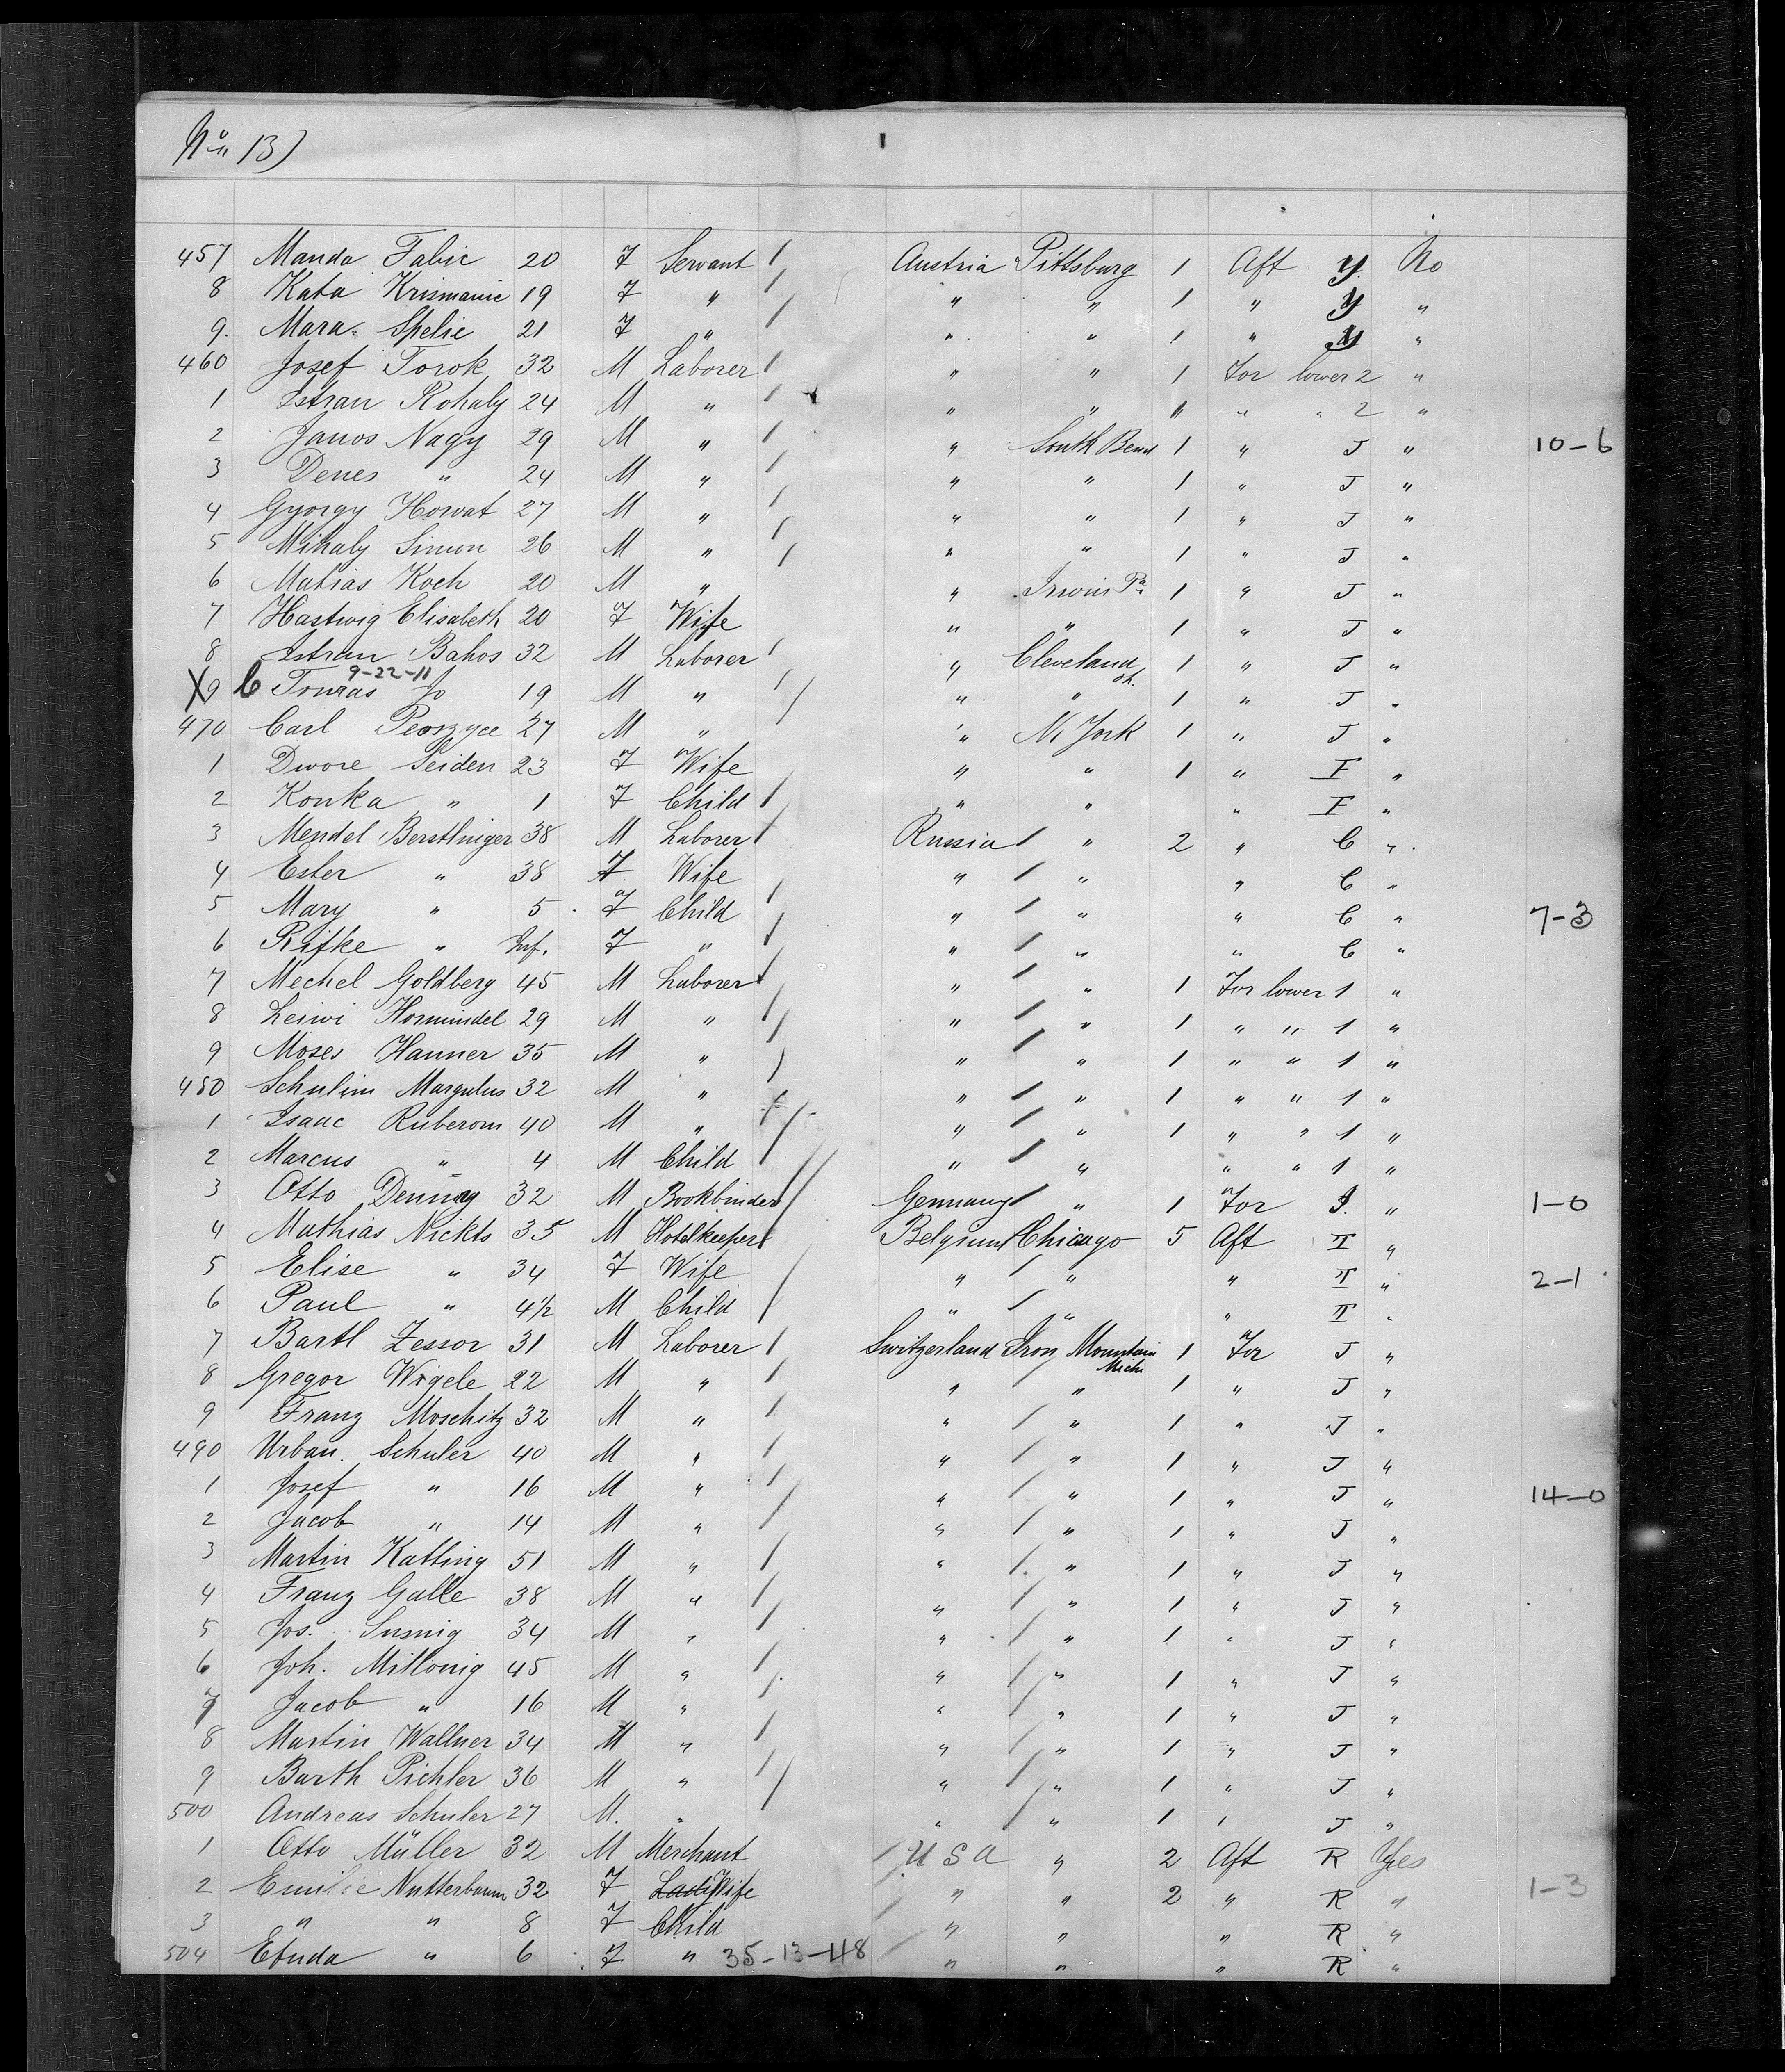 No 13)
457 Manda Fabic 20 F Servant / Austria Pittsburg 1 Aft Y. No
8 Kata Krismanic 19 F " / " " 1 " Y "
9. Mara Spelic 21 F " / " " 1 " Y "
460 Josef Torok 32 M Laborer / " " 1 For lower 2 "
1 Istran Rohaly 24 M " / " " " " " 2 "
2 Janos Nagy 29 M " / " South Bend 1 " J " 10-6
3 Denes " 24 M " / " " 1 " J "
4 Gyorgy Horvat 27 M " / " " 1 " J "
5 Mihaly Simon 26 M " / " " 1 " J "
6 Matias Koch 20 M " / " Irwin Pa 1 " J "
7 Hastwig Elisabeth 20 F Wife " " 1 " J "
8 Istran Bahos 32 M Laborer / " Cleveland Oh. 1 " J "
9-22-11
X9 C Touras Jo 19 M " / " " 1 " J "
470 Carl 27 M " / " N York 1 " J "
1 Dwore Seiden 23 F Wife " " 1 " F "
2 Konka " 1 F Child / " " " F "
3 Mendel Berstlinger 38 M Laborer / Russia / " 2 " C "
4 Ester " 38 F Wife " / " " C "
5 Mary " 5 F Child / " / " " C " 7-3
6 Rifke " Inf. F " / " / " " C "
7 Mechel Goldberg 45 M Laborer / " / " 1 For lower 1 "
8 Leiwi Hormindel 29 M " / " / " 1 " " 1 "
9 Moses Hanner 35 M " / " / " 1 " " 1 "
480 Schulim Margulus 32 M " / " / " 1 " " 1 "
1 Isaac Ruberom 40 M " / " / " 1 " " 1 "
2 Marcus " 4 M Child / " / " " " 1 "
3 Otto Denmag 32 M Bookbinder / Germany / " 1 For J. " 1-0
4 Mathias Nickts 35 M Hotelkeeper / Belgium / Chicago 5 Aft II "
5 Elise " 34 F Wife " / " " II " 2-1
6 Paul " 4½ M Child / " / " " II "
7 Bartl Zessor 31 M Laborer / Switzerland Iron Mountain Mich 1 For J "
8 Gregor Wigele 22 M " / " / " 1 " J "
9 Franz Moschitz 32 M " / " / " 1 " J "
490 Urban. Schuler 40 M " / " / " 1 " J "
1 Josef " 16 M " / " / " 1 " J " 14-0
2 Jacob " 14 M " / " / " 1 " J "
3 Martin Katting 51 M " / " / " 1 " J "
4 Franz Galle 38 M " / " / " 1 " J "
5 Jos. Susnig 34 M " / " / " 1 " J "
6 Joh. Millonig 45 M " / " / " 1 " J "
7 Jacob " 16 M " / " / " 1 " J "
8 Martin Wallner 34 M " / " / " 1 " J "
9 Barth Pichler 36 M " / " / " 1 " J "
500 Andreas Schuler 27 M. " / " / " 1 " J "
1 Otto Müller 32 M Merchant / U S A " 2 Aft R Yes
2 Emilie Nutterbaum 32 F Lady Wife / " " 2 " R " 1-3
3 " " 8 F Child / " " " R "
504 Etuda " 6 F " 35-13-48 " " " R "